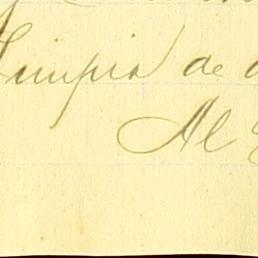 limpia de
Al